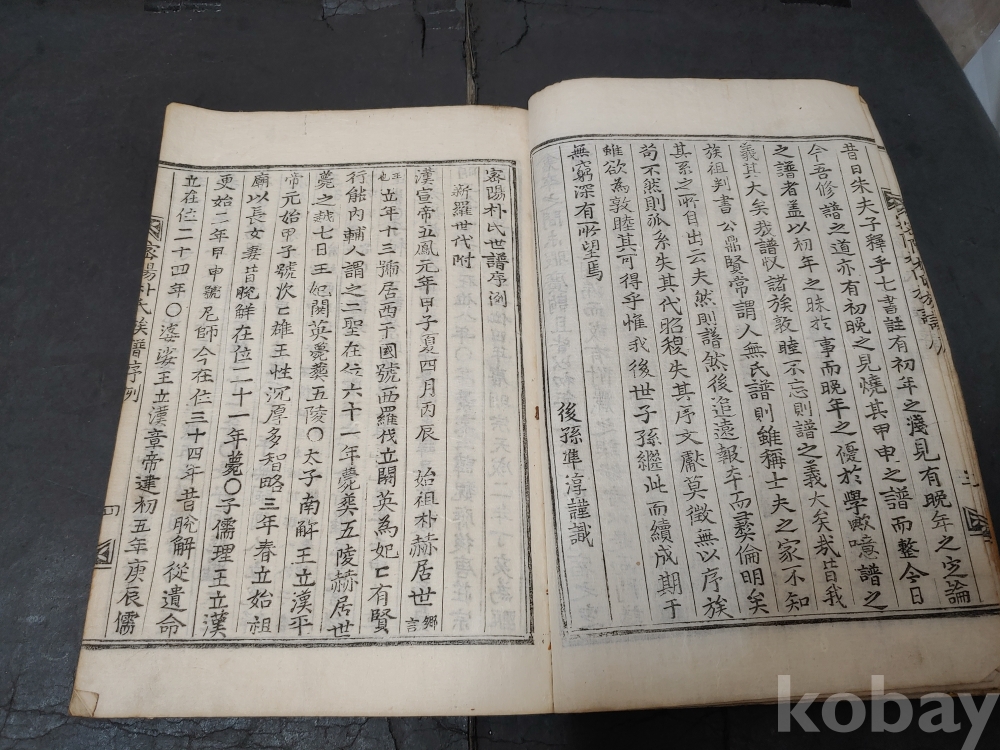 昔日朱夫子釋乎七書註有初年之淺見有晚年之定論
今吾修譜之道亦有初晚之見燒其甲申之譜而整今日
之譜者盖以初年之昧於事而晚年之優於學歟噫譜之
義其大矣哉譜以諸族敦睦不忘則譜之義大矣哉昔我
族祖判書公鼎賢常謂人無氏譜則雖稱士夫之家不知
其系之所自出云夫然則譜然後追遠報本而彛倫明矣
苟不然則派系失其代昭穆失其序文獻莫徵無以序族
雖欲為敦睦其可得乎惟我後世子孫繼此而續成期于
無窮深有所望焉
後孫準淳謹識
密陽朴氏世譜序例
新羅世代附
漢宣帝五鳳元年甲子夏四月丙辰 始祖朴赫居世 鄉言
王也 立年十三号居西干國號西羅伐立閼英為妃妃有賢
行能內輔人謂之二聖在位六十一年薨葬五陵赫居世
薨之越七日王妃閼英薨葬五陵〇太子南解王立漢平
帝元始甲子號次次雄王性沉厚多智略三年春立始祖
廟以長女妻昔脫解在位二十一年薨〇子儒理王立漢
更始二年甲申號尼師今在位三十四年昔脫解從遺命
立在位二十四年〇婆娑王立漢章帝建初五年庚辰儒
密陽朴氏族譜序列
四